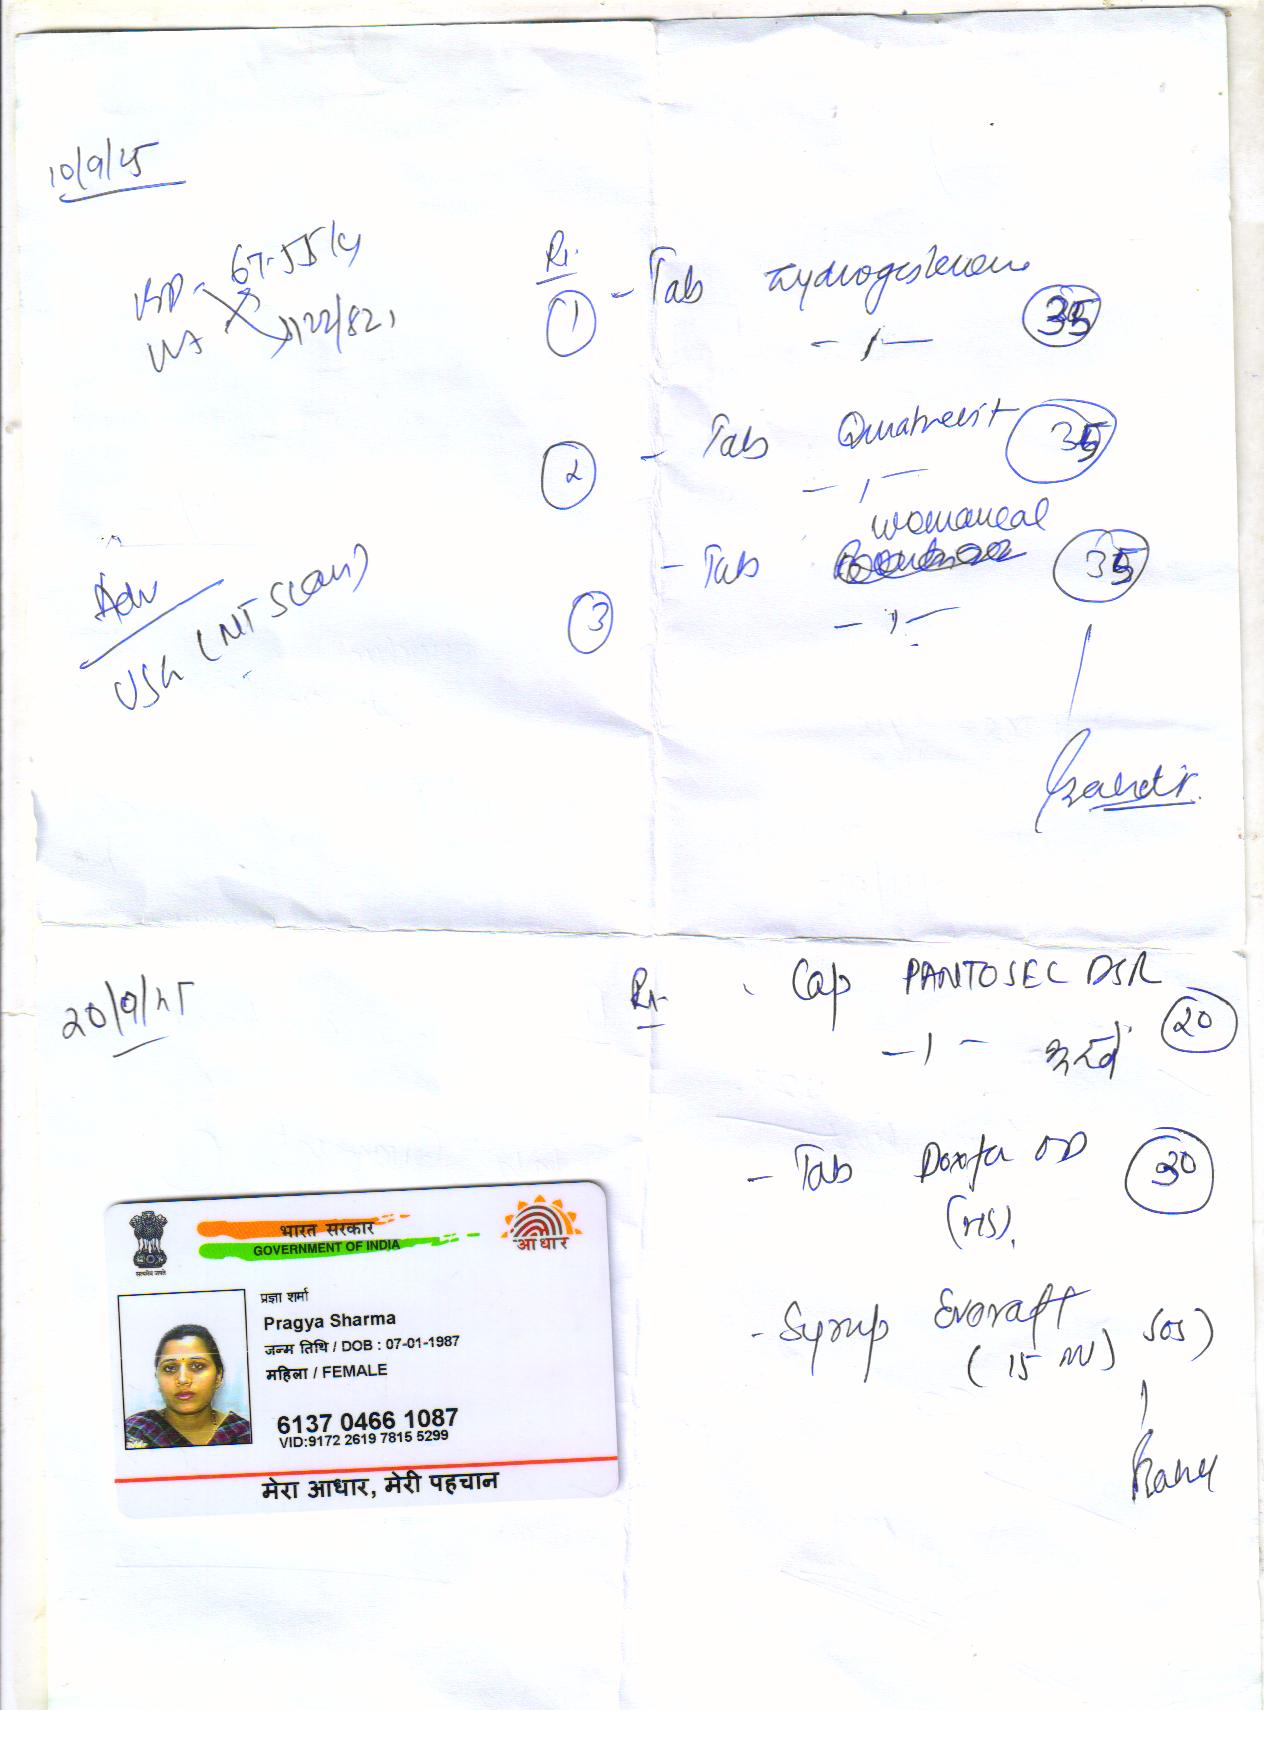 10/9/25
BP - 67.55 kg
Wt 122/82,
Rx.
① - Tab Hydrogesterone 35
- 1 -
② - Tab 35
- 1 -
womaneal
③ - Tab 35
- 1 -
Adv
USG (NT Scan)
20/9/25
Rx - Cap PANTOSEC DSR 20
- 1 -
- Tab Doxfa OD 30
(HS).
- Syrup Evoraft
(15 ml) SOS)
भारत सरकार
GOVERNMENT OF INDIA
सत्यमेव जयते
आधार
प्रज्ञा शर्मा
Pragya Sharma
जन्म तिथि / DOB : 07-01-1987
महिला / FEMALE
6137 0466 1087
VID:9172 2619 7815 5299
मेरा आधार, मेरी पहचान